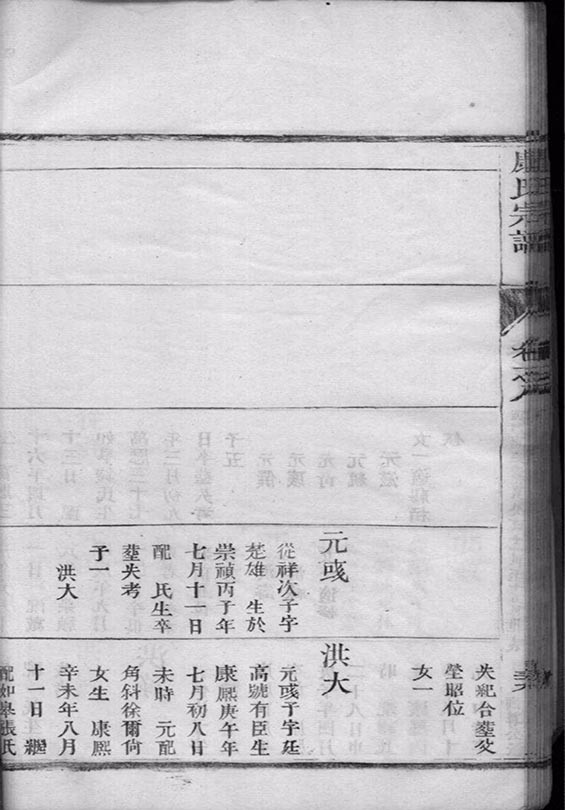 康氏宗譜
卷六
元彧
從祥次子字
楚雄 生於
崇禎丙子年
七月十一日
配 氏生卒
塟失考
子一
洪大
失紀合塟父
塋昭位
女一
洪大
元彧子字廷
高號有臣生
康熙庚午年
七月初八日
未時 元配
角斜徐爾尙
女生 康熙
辛未年八月
十一日 繼
配如臯張氏